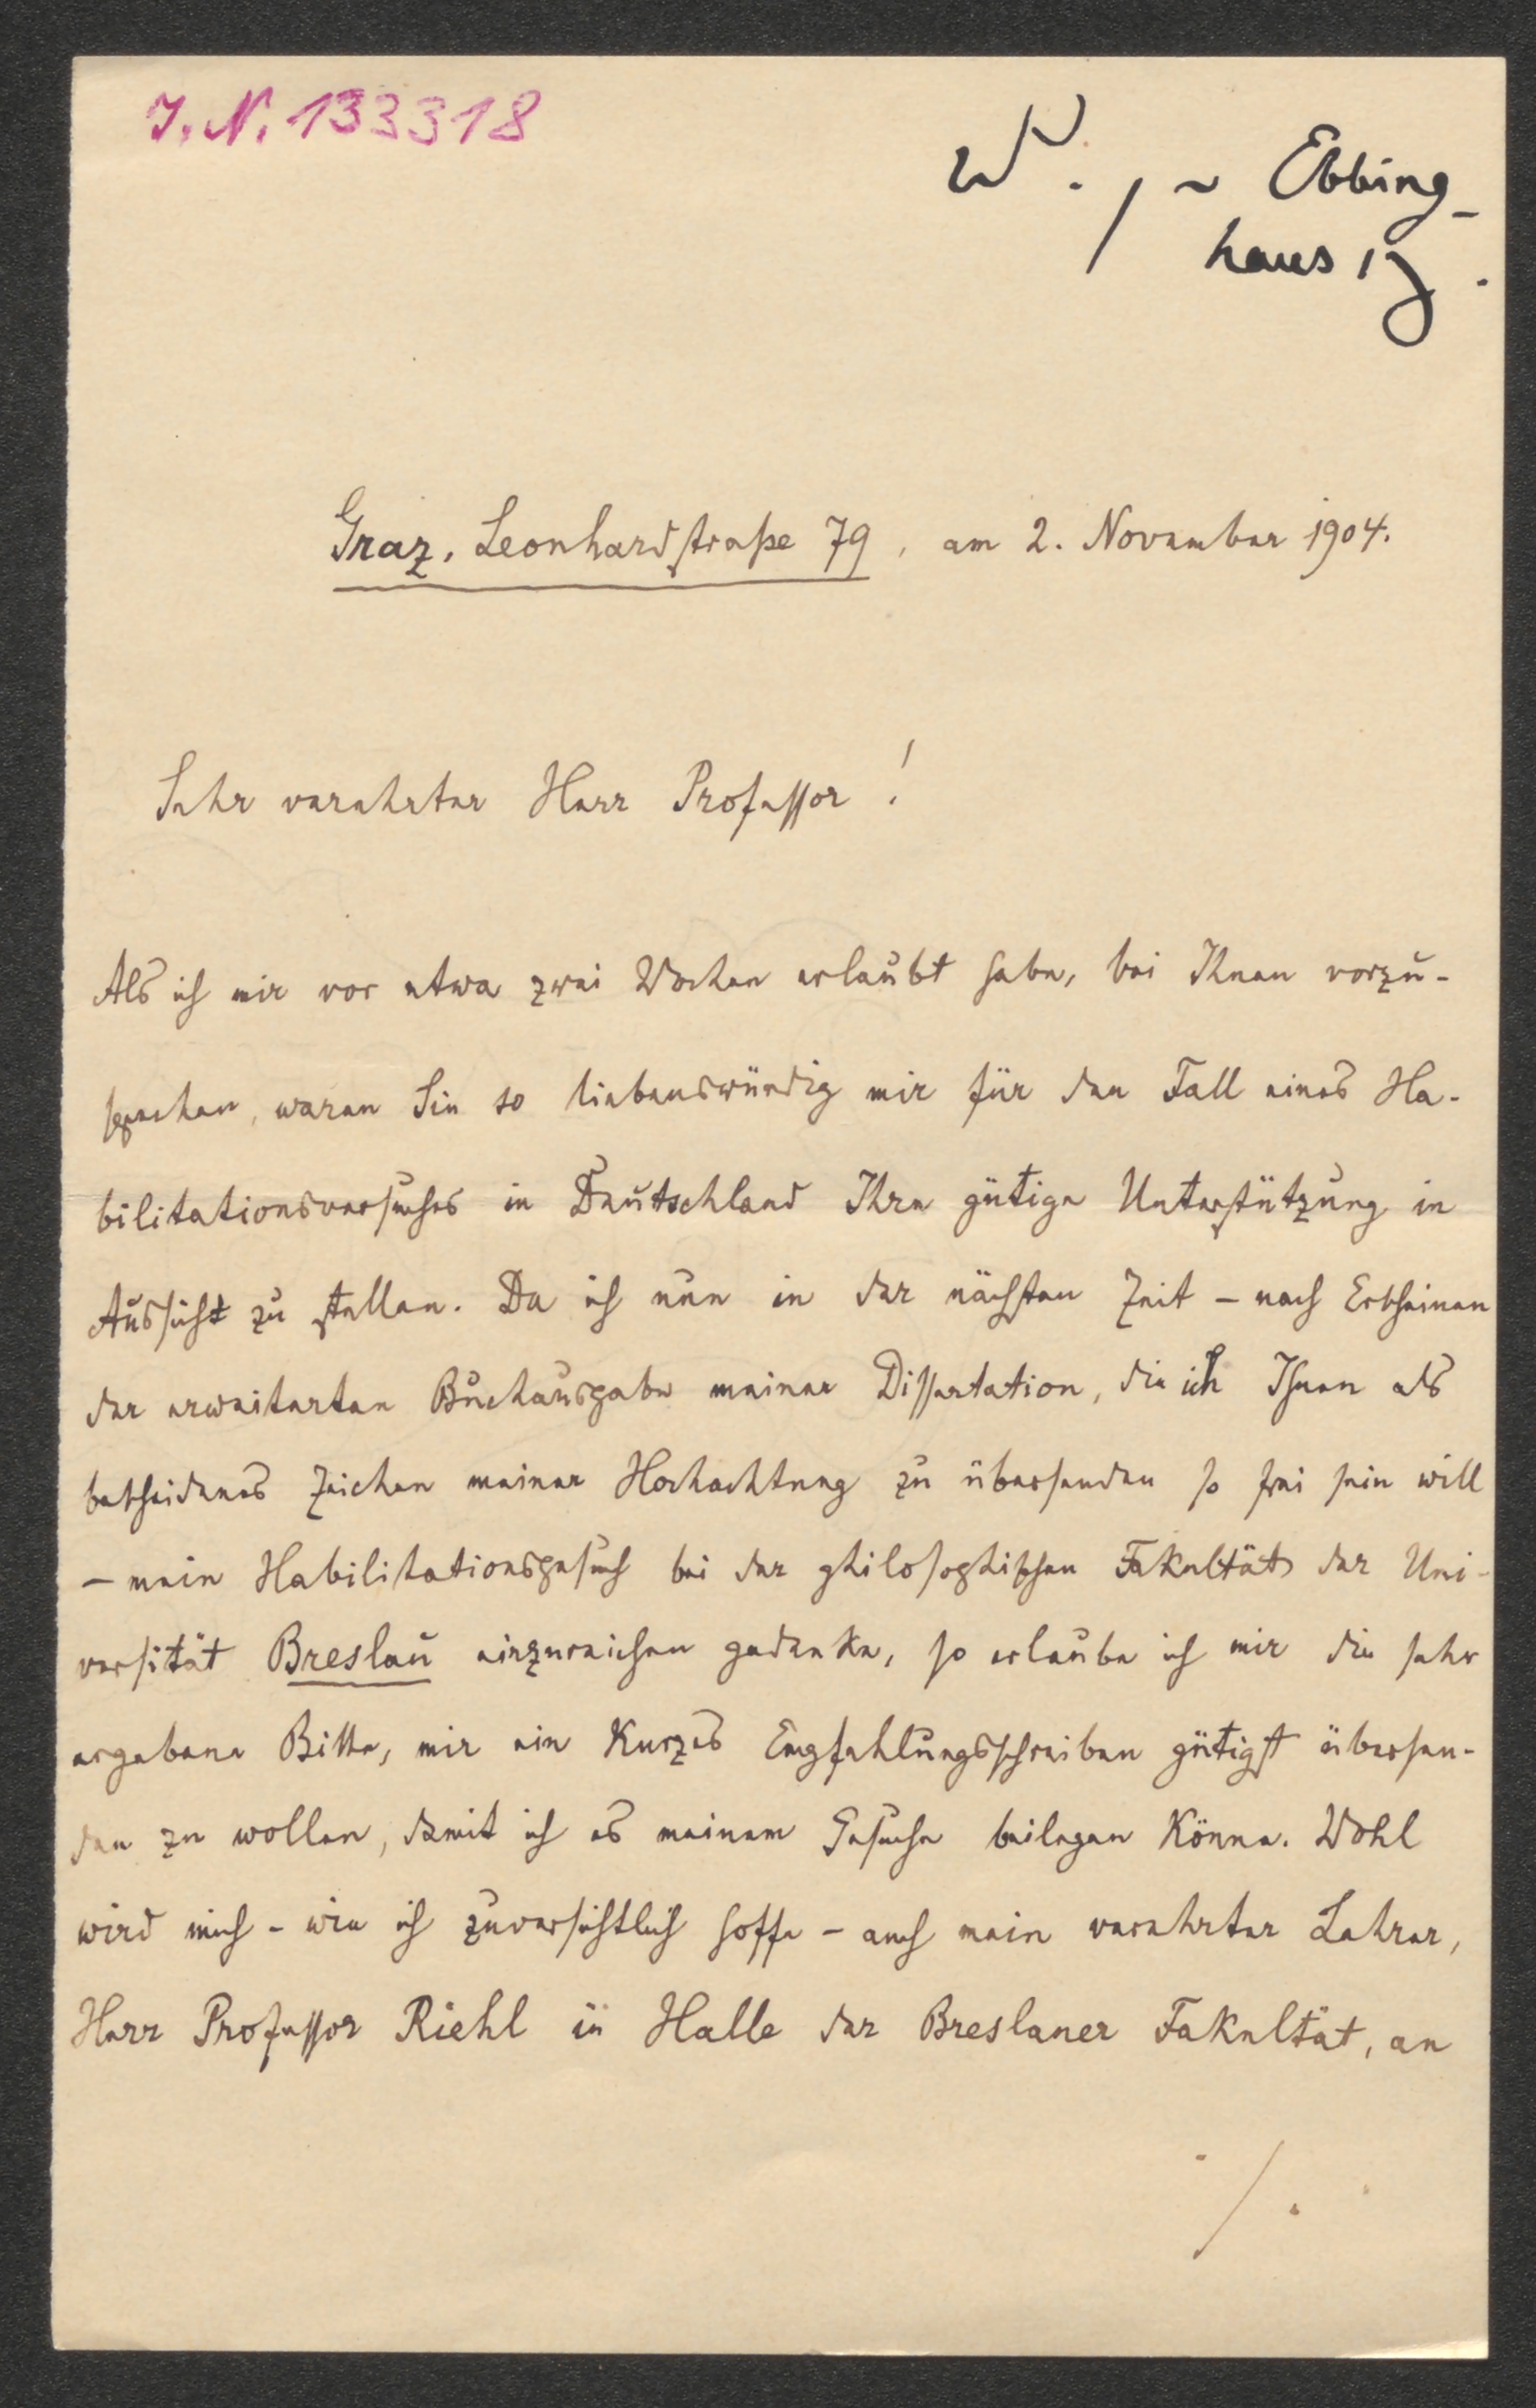 J. N. 133318
Ebbing-
haus
Graz, Leonhardstraße 79, am 2. November 1904.
Sehr verehrter Herr Professor!
Als ich mir vor etwa zwei Wochen erlaubt habe, bei Ihnen vorzu-
sprechen, waren Sie so liebenswürdig mir für den Fall eines Ha-
bilitationsversuches in Deutschland Ihre gütige Unterstützung in
Aussicht zu stellen. Da ich nun in der nächsten Zeit – nach Erscheinen
der erweiterten Buchausgabe meiner Dissertation, die ich Ihnen als
bescheidenes Zeichen meiner Hochachtung zu übersenden so frei sein will
– mein Habilitationsgesuch bei der philosophischen Fakultät der Uni-
versität Breslau einzureichen gedenke, so erlaube ich mir die sehr
ergebene Bitte, mir ein kurzes Empfehlungsschreiben gütigst übersen-
den zu wollen, damit ich es meinem Gesuche beilegen könne. Wohl
wird mich – wie ich zuversichtlich hoffe – auch mein verehrter Lehrer,
Herr Professor Riehl in Halle der Breslauer Fakultät, an
/.